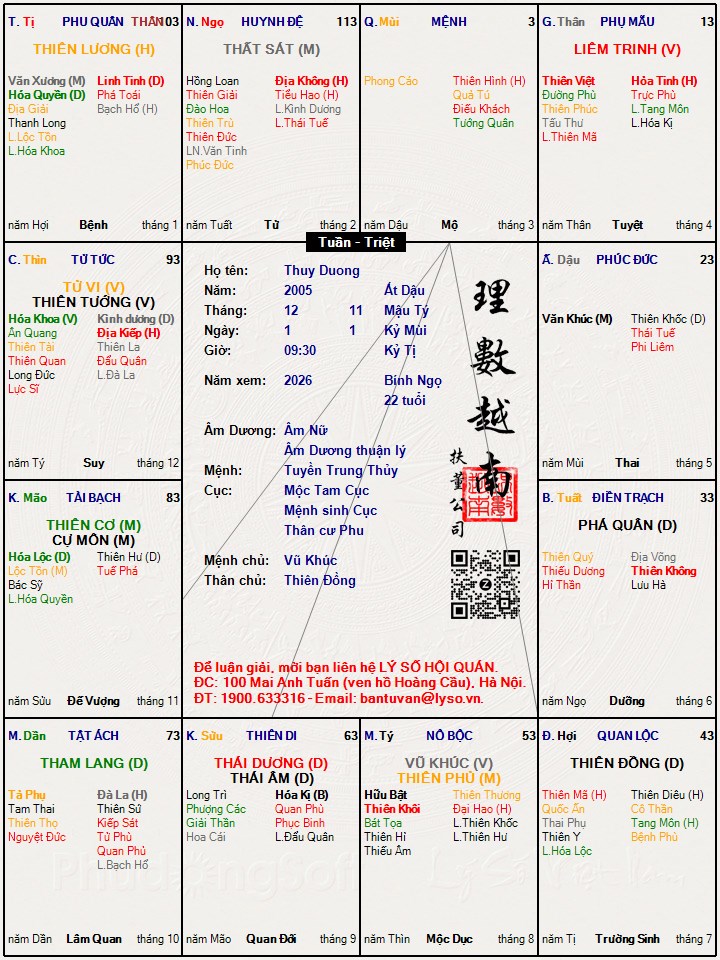 T. Tị PHU QUÂN THÂN 103
THIÊN LƯƠNG (H)
Văn Xương (M) Linh Tinh (D)
Hóa Quyền (D) Phá Toái
Địa Giải Bạch Hổ (H)
Thanh Long
L.Lộc Tồn
L.Hóa Khoa
năm Hợi Bệnh tháng 1
N. Ngọ HUYNH ĐỆ 113
THẤT SÁT (M)
Hồng Loan Địa Không (H)
Thiên Giải Tiểu Hao (H)
Đào Hoa L.Kình Dương
Thiên Trù L.Thái Tuế
Thiên Đức
LN.Văn Tinh
Phúc Đức
năm Tuất Tử tháng 2
Q. Mùi MỆNH 3
Phong Cáo Thiên Hình (H)
Quả Tú
Điếu Khách
Tướng Quân
năm Dậu Mộ tháng 3
G. Thân PHỤ MẪU 13
LIÊM TRINH (V)
Thiên Việt Hỏa Tinh (H)
Đường Phù Trực Phù
Thiên Phúc L.Tang Môn
Tấu Thư L.Hóa Kị
L.Thiên Mã
năm Thân Tuyệt tháng 4
Tuần - Triệt
C. Thìn TỬ TỨC 93
TỬ VI (V)
THIÊN TƯỚNG (V)
Hóa Khoa (V) Kình dương (D)
Ân Quang Địa Kiếp (H)
Thiên Tài Thiên La
Thiên Quan Đẩu Quân
Long Đức L.Đà La
Lực Sĩ
năm Tý Suy tháng 12
Họ tên: Thuy Duong
Năm: 2005 Ất Dậu
Tháng: 12 11 Mậu Tý
Ngày: 1 1 Kỷ Mùi
Giờ: 09:30 Kỷ Tị
Năm xem: 2026 Bính Ngọ
22 tuổi
Âm Dương: Âm Nữ
Âm Dương thuận lý
Mệnh: Tuyền Trung Thủy
Cục: Mộc Tam Cục
Mệnh sinh Cục
Thân cư Phu
Mệnh chủ: Vũ Khúc
Thân chủ: Thiên Đồng
理數越南
扶董公司
Z
Để luận giải, mời bạn liên hệ LÝ SỐ HỘI QUÁN.
ĐC: 100 Mai Anh Tuấn (ven hồ Hoàng Cầu), Hà Nội.
ĐT: 1900.633316 - Email: bantuvan@lyso.vn.
Ấ. Dậu PHÚC ĐỨC 23
Văn Khúc (M) Thiên Khốc (D)
Thái Tuế
Phi Liêm
năm Mùi Thai tháng 5
K. Mão TÀI BẠCH 83
THIÊN CƠ (M)
CỰ MÔN (M)
Hóa Lộc (D) Thiên Hư (D)
Lộc Tồn (M) Tuế Phá
Bác Sỹ
L.Hóa Quyền
năm Sửu Đế Vượng tháng 11
B. Tuất ĐIỀN TRẠCH 33
PHÁ QUÂN (D)
Thiên Quý Địa Võng
Thiếu Dương Thiên Không
Hỉ Thần Lưu Hà
năm Ngọ Dưỡng tháng 6
M. Dần TẬT ÁCH 73
THAM LANG (D)
Tả Phụ Đà La (H)
Tam Thai Thiên Sứ
Thiên Thọ Kiếp Sát
Nguyệt Đức Tử Phù
Quan Phủ
L.Bạch Hổ
năm Dần Lâm Quan tháng 10
K. Sửu THIÊN DI 63
THÁI DƯƠNG (D)
THÁI ÂM (D)
Long Trì Hóa Kị (B)
Phượng Các Quan Phù
Giải Thần Phục Binh
Hoa Cái L.Đẩu Quân
năm Mão Quan Đới tháng 9
M. Tý NÔ BỘC 53
VŨ KHÚC (V)
THIÊN PHỦ (M)
Hữu Bật Thiên Thương
Thiên Khôi Đại Hao (H)
Bát Tọa L.Thiên Khốc
Thiên Hỉ L.Thiên Hư
Thiếu Âm
năm Thìn Mộc Dục tháng 8
Đ. Hợi QUAN LỘC 43
THIÊN ĐỒNG (D)
Thiên Mã (H) Thiên Diêu (H)
Quốc Ấn Cô Thần
Thai Phụ Tang Môn (H)
Thiên Y Bệnh Phù
L.Hóa Lộc
năm Tị Trường Sinh tháng 7